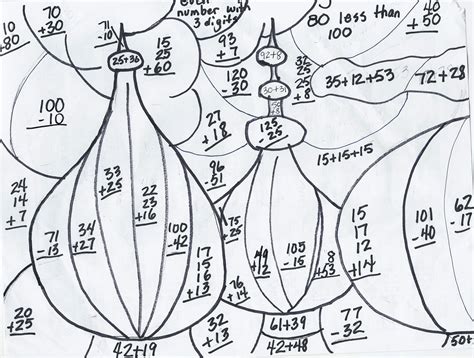 Even
number with
3 digits
80 less than
100
10
+80
70
+30
71
-10
15
25
+60
93
+7
92+8
40
+50
25+36
120
-30
30+31
32
25
25
+8
35+12+53
72+28
100
-10
50
-28
27
+18
125
-25
15+15+15
33
+25
96
-51
24
14
+7
22
23
+16
34
+27
71
-13
100
-42
75
-25
15
17
12
+14
101
-40
62
-17
17
15
16
+13
49
+12
105
-15
8
+53
76
+14
20
+25
32
+13
61+39
77
-32
42+19
42+48
50+